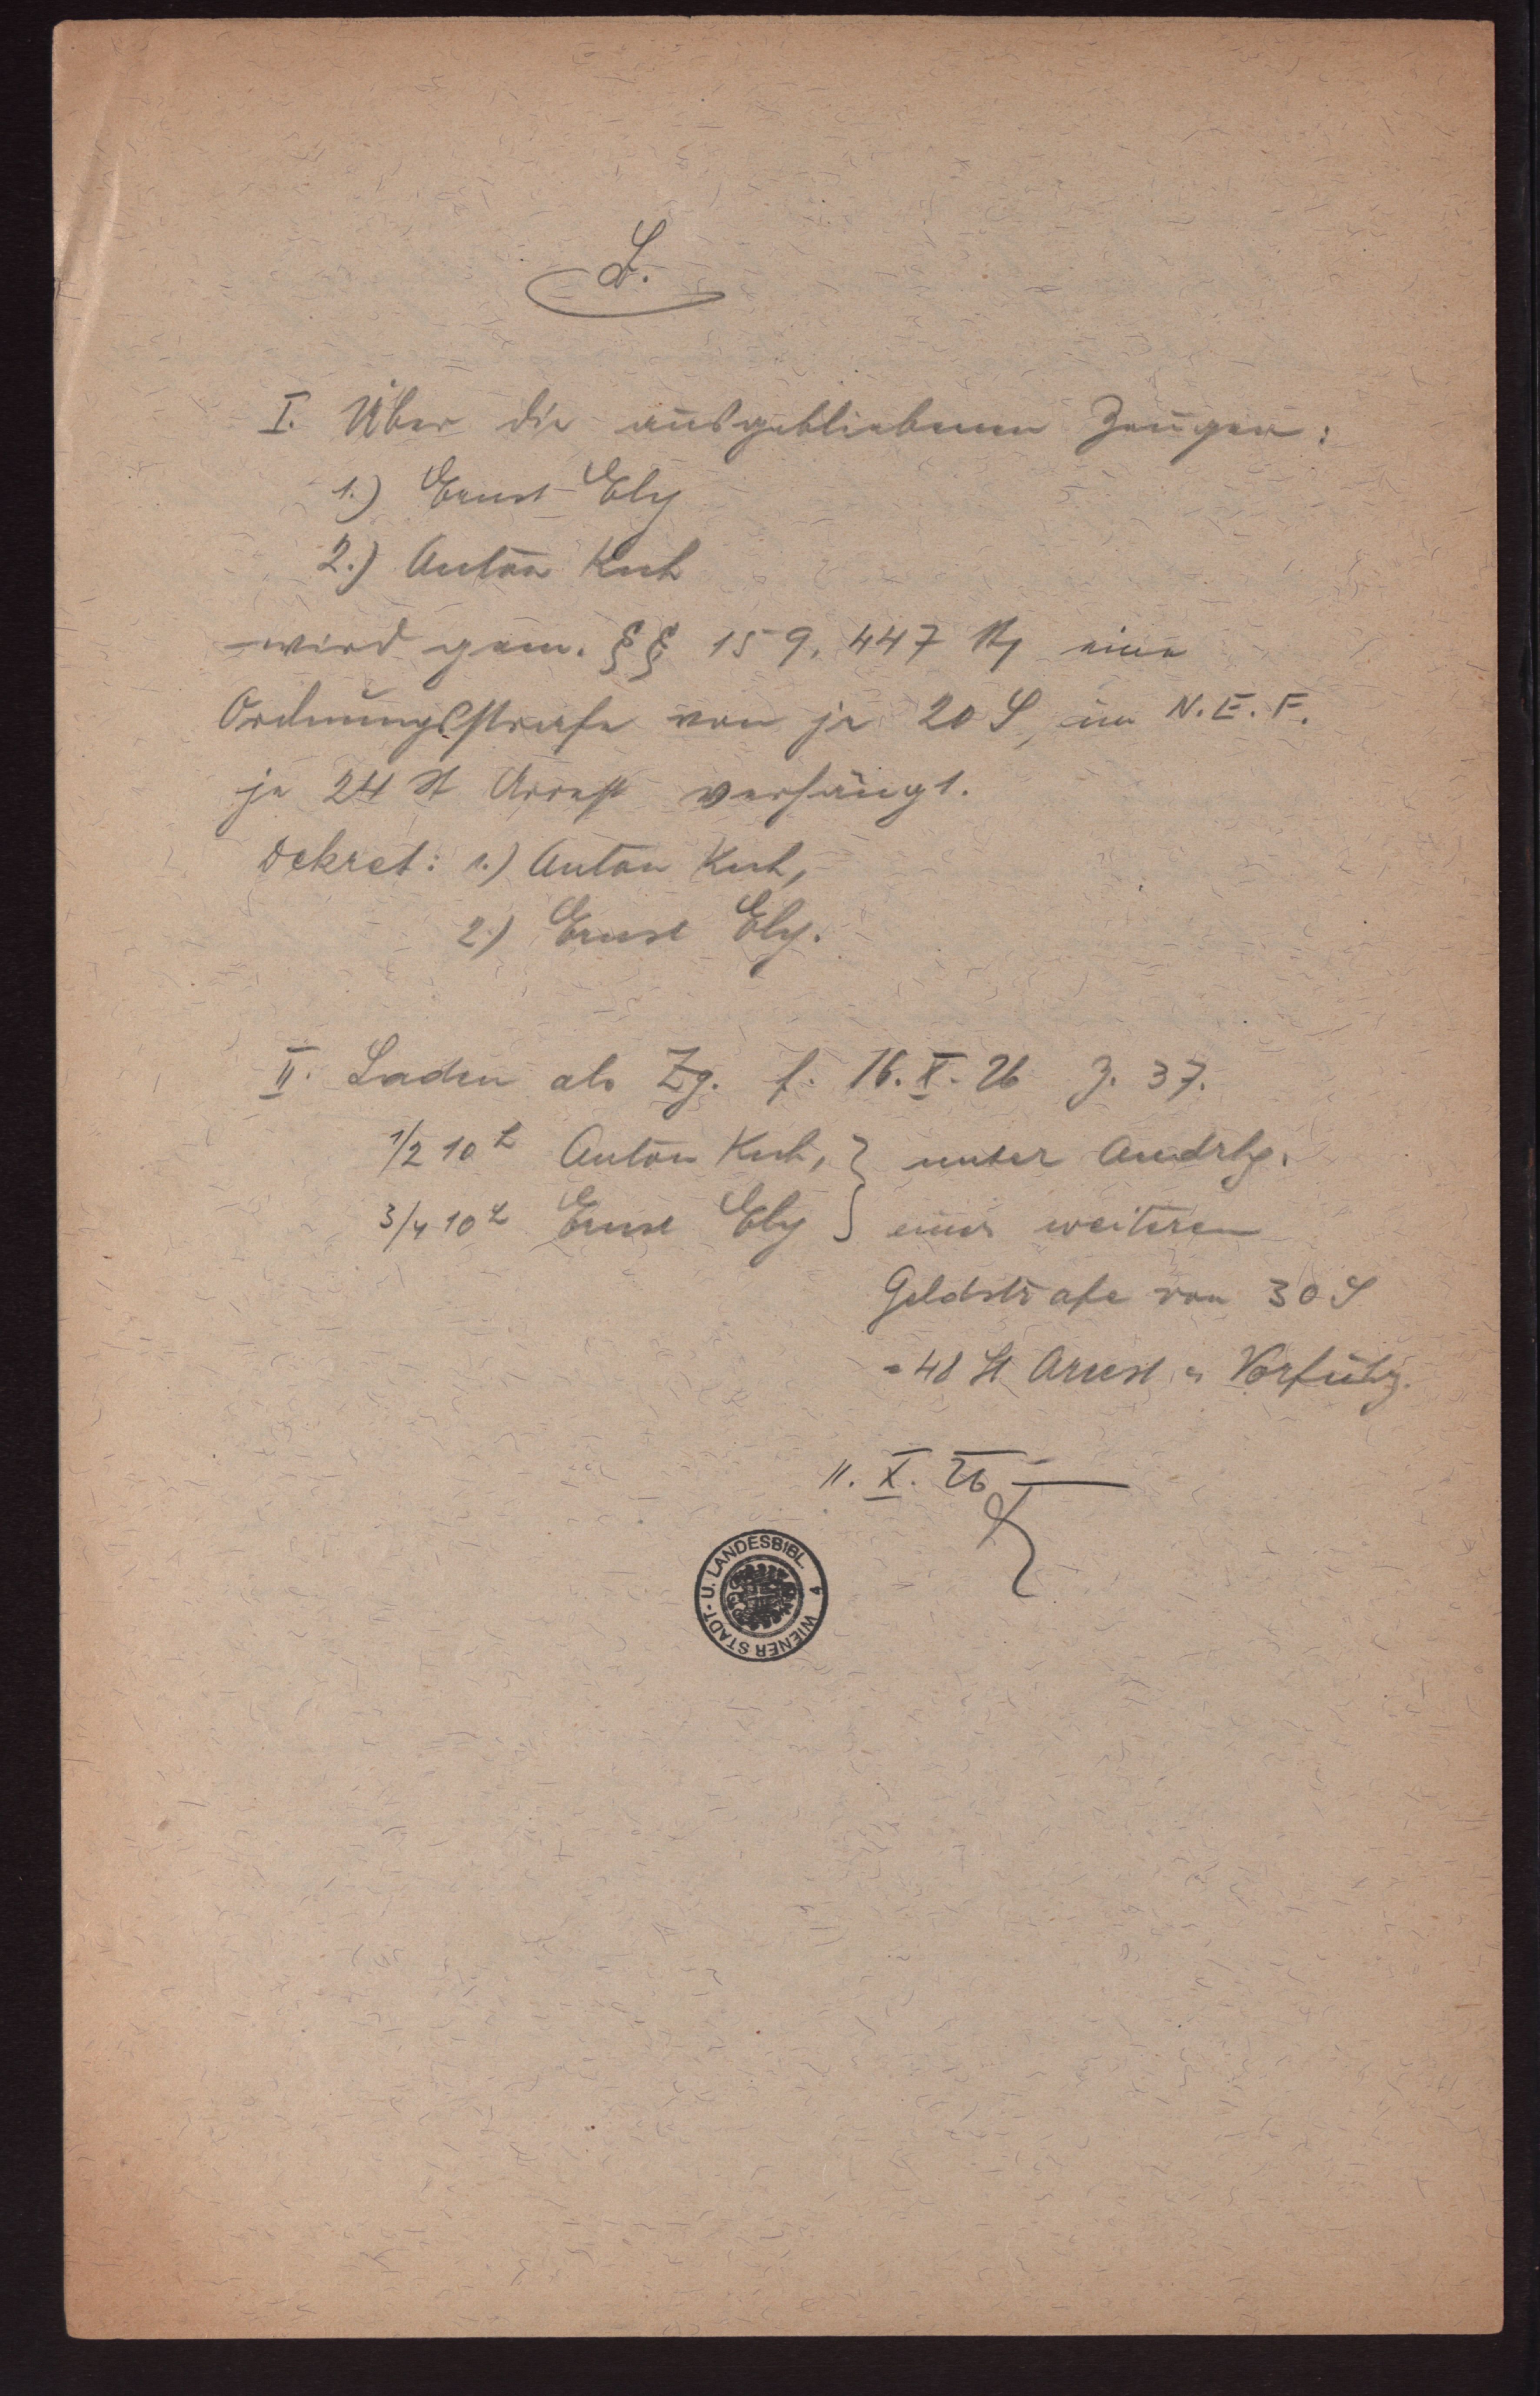 B.
I. Über die ausgebliebenen Zeugen:
1.) Ernst Ely
2.) Anton Kuh
wird gem. §§ 159, 447 St eine
Ordnungsstrafe von je 20 S, im N.E.F.
je 24 St Arrest verhängt.
Dekret: 1.) Anton Kuh,
2.) Ernst Ely.
II. Laden als Zg. f. 16.X.26 Z. 37.
1/2 10 h Anton Kuh, } unter Andrhg.
3/4 10 h Ernst Ely } einer weiteren
Geldstrafe von 30 S
= 48 St Arrest u Vorführg.
11. X. 26
WIENER STADT- U. LANDESBIBL. 4